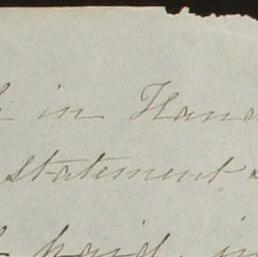 in Hand
statement
paid, in